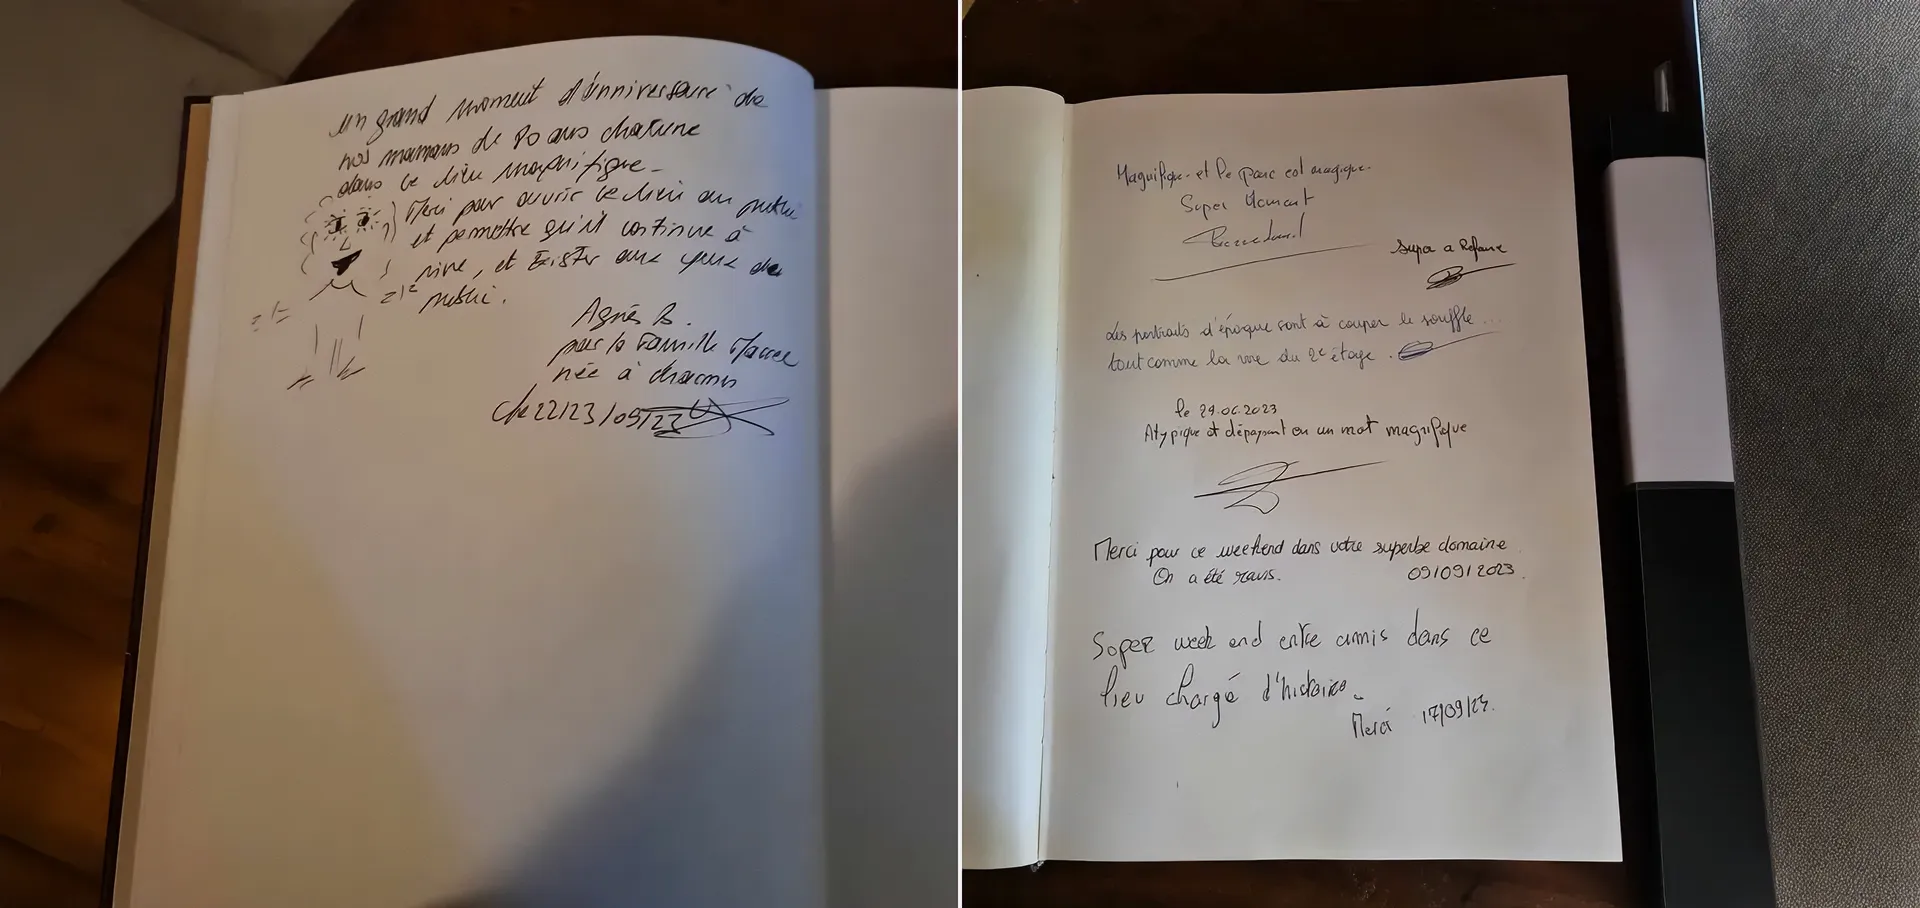 un grand moment d'énniversaire de
nos mamans de 80 ans chacune
dans ce lieu magnifique -
Merci pour ouvrir ce lieu au public
et permettre qu'il continue à
vivre, et Exister aux yeux du
public.
Agnès B.
pour la Famille
née à
le 22/23/09/23
Magnifique et le parc est magique.
Super Moment
Super a Refaire
Les portraits d'époque sont à couper le souffle ...
tout comme la vue du 2e étage.
le 29.06.2023
Atypique et dépaysant en un mot magnifique
Merci pour ce weekend dans votre superbe domaine
On a été ravis. 09/09/2023.
Soper week end entre amis dans ce
lieu chargé d'histoire.
Merci 17/09/23.